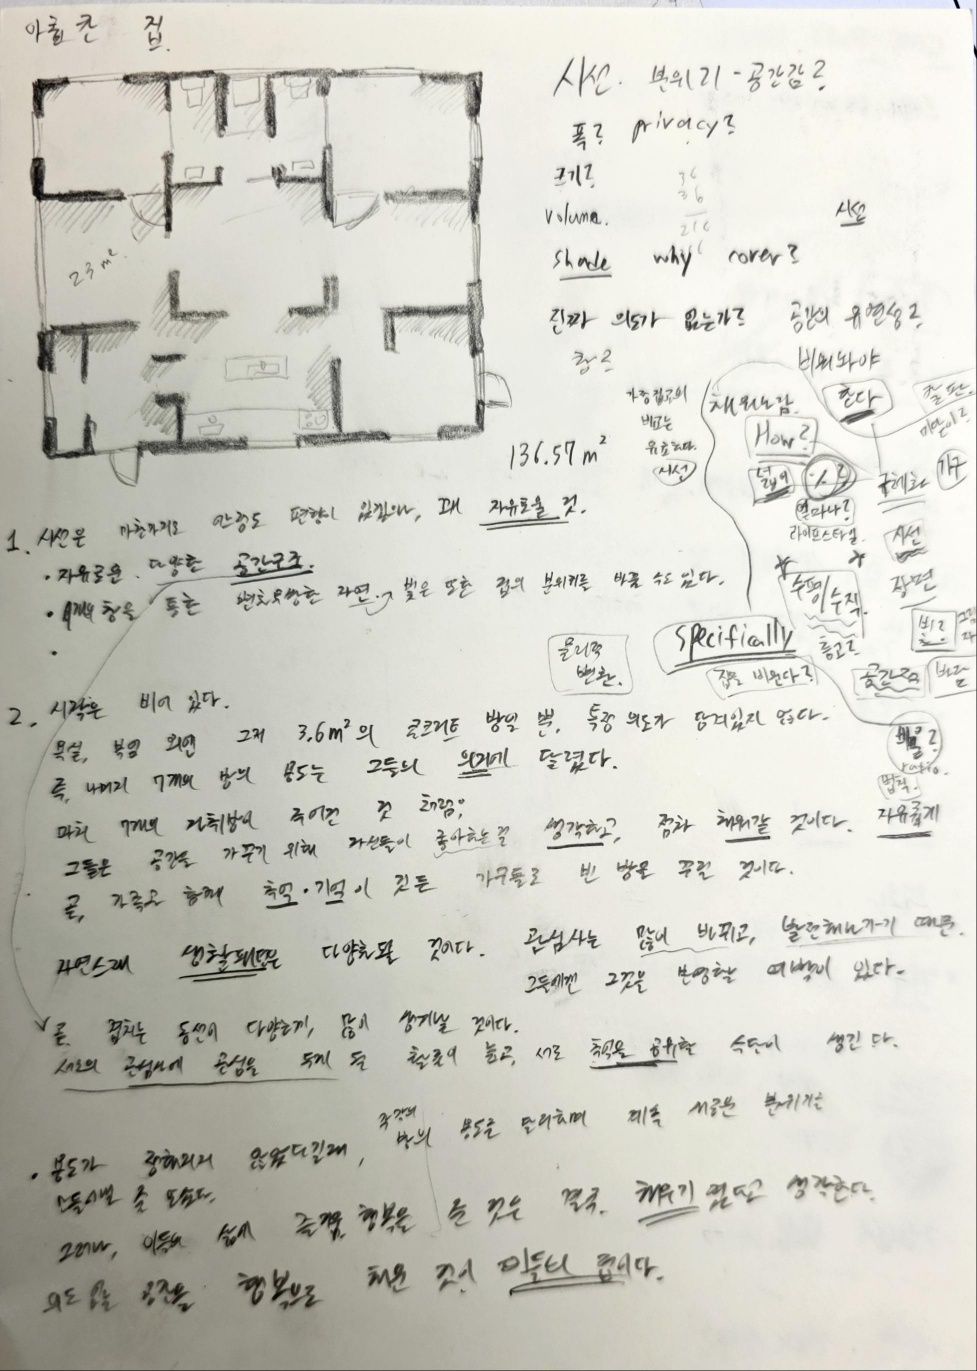 아홉 칸 집.
시선. 분위기 - 공간감?
폭? privacy?
크기?
36
36
216
volume.
시선
shade why cover?
진짜 의도가 없는가? 공간의 유연성?
창?
23 m²
136.57 m²
비워놔야
한다
채워느감.
How?
구체화
가구
얼마나?
라이프스타일.
시선
수평/수직.
장면
층고?
specifically
집을 비운다?
공간감
물리적
변환.
비율?
ratio.
법칙.
1. 시선은 마찬가지로 편향이 있겠으나, 꽤 자유로울 것.
· 자유로운 다양한 공간구조.
· 창을 통한 자연. 빛은 또한 집의 분위기를 바꿀 수도 있다.
2. 시작은 비어 있다.
욕실, 부엌 외엔 그저 3.6m²의 콘크리트 방일 뿐, 특정 의도가 담겨있지 않다.
즉, 나머지 7개의 방의 용도는 그들의 의지에 달렸다.
마치 7개의 주어진 것 처럼,
그들은 공간을 가꾸기 위해 자신들이 좋아하는걸 생각하고, 점차 채워갈 것이다. 자유롭게
곧, 가족과 함께 추억·기억이 깃든 가구들로 빈 방을 꾸릴 것이다.
자연스레 생활패턴은 다양화될 것이다. 관심사는 많이 바뀌고, 발전해나가기 때문.
그들에겐 그것을 반영할 여백이 있다.
곧, 겹치는 동선이 다양하게, 많이 생겨날 것이다.
서로의 관심사에 관심을 두게 될 확률이 높고, 서로 추억을 공유할 수단이 생긴다.
각각의
· 용도가 정해지지 않았다길래, 방의 용도를 달리하며 계속 새로운 분위기를
만들어낼 줄 알았다.
그러나, 이들의 삶에 즐거움, 행복을 준 것은 결국, 채우기 였다고 생각한다.
의도 없는 공간을 행복으로 채운 것이 이들의 집이다.